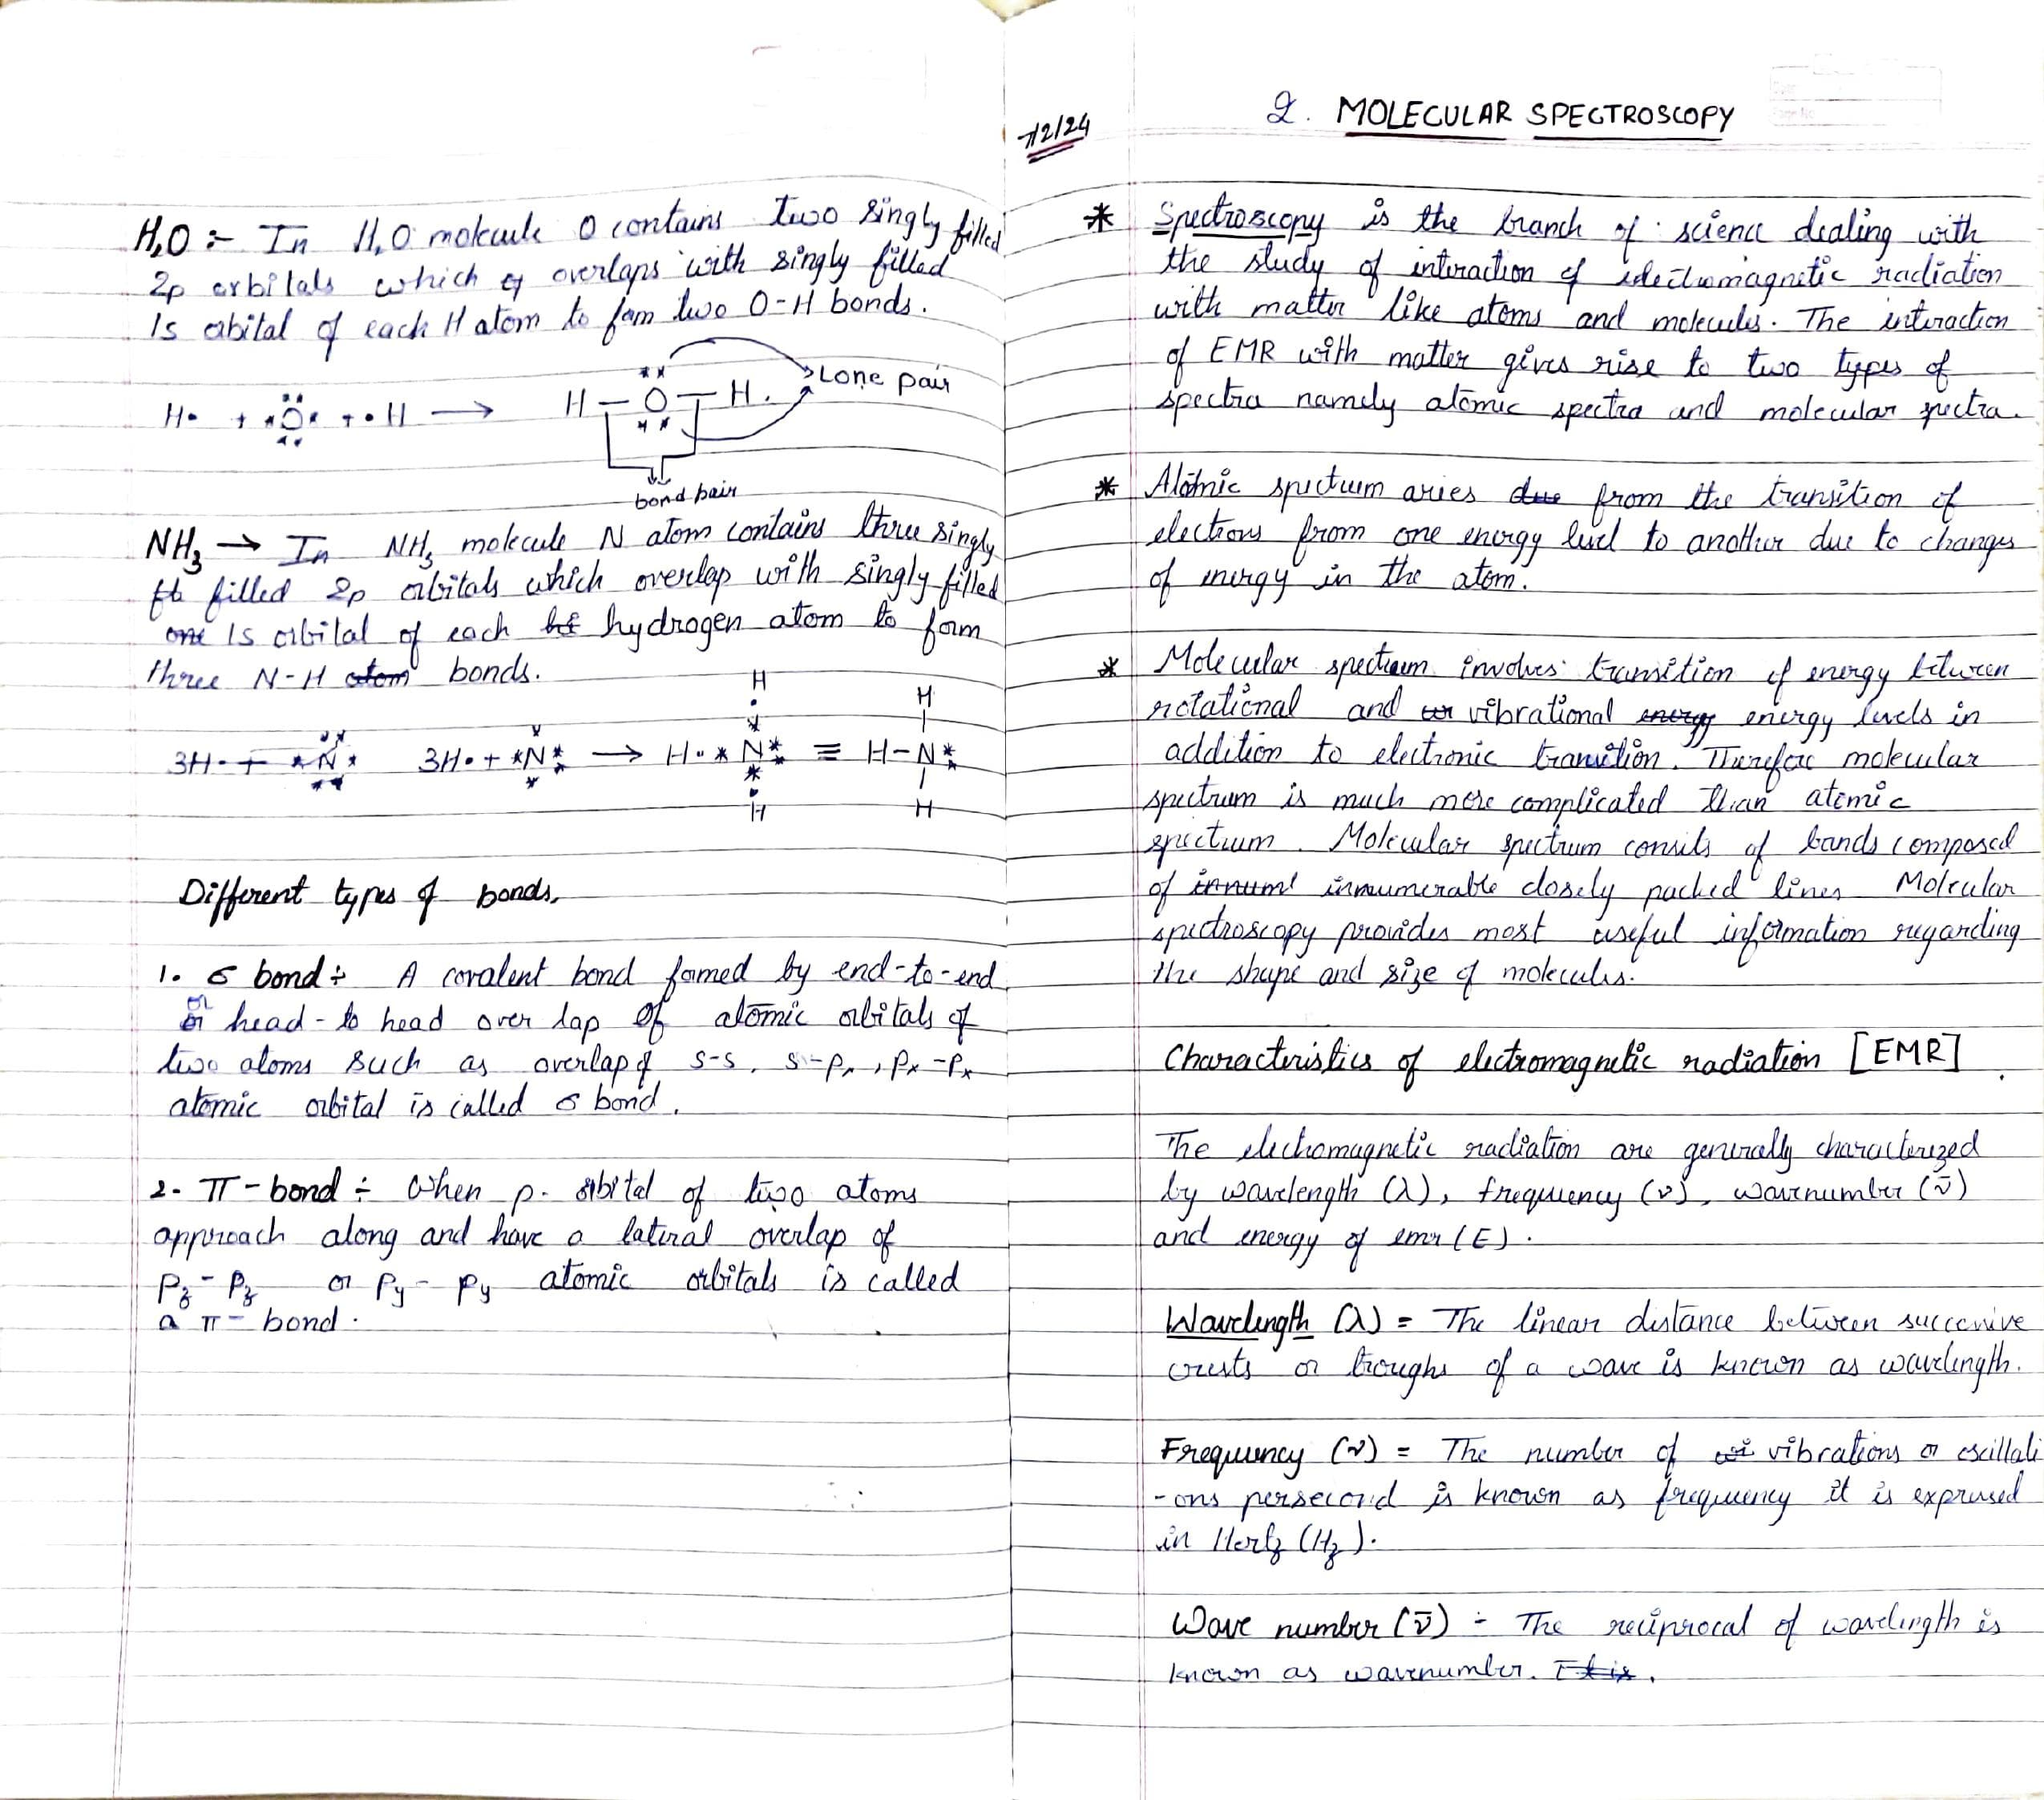 H₂O :- In H₂O molecule O contains two singly filled
2p orbitals which overlaps with singly filled
1s orbital of each H atom to form two O-H bonds.
H• + •Ö• + •H → H-O-H. Lone pair
bond pair
NH₃ → In NH₃ molecule N atom contains three singly
filled 2p orbitals which overlap with singly filled
one 1s orbital of each hydrogen atom to form
three N-H atom bonds.
H H
3H• + *N* 3H• + *N* → H•*N* ≡ H-N*
H H
Different types of bonds.
1. σ bond ÷ A covalent bond formed by end-to-end
or head-to head over lap of atomic orbitals of
two atoms such as overlap of s-s, s-pₓ, pₓ-pₓ
atomic orbital is called σ bond.
2. π-bond ÷ When p-orbital of two atoms
approach along and have a lateral overlap of
Pz - Pz or Py - Py atomic orbitals is called
a π-bond.
7/2/24
2. MOLECULAR SPECTROSCOPY
* Spectroscopy is the branch of science dealing with
the study of interaction of electromagnetic radiation
with matter like atoms and molecules. The interaction
of EMR with matter gives rise to two types of
spectra namely atomic spectra and molecular spectra.
* Atomic spectrum aries due from the transition of
electrons from one energy level to another due to changes
of energy in the atom.
* Molecular spectrum involves transition of energy between
rotational and vibrational energy energy levels in
addition to electronic transition. Therefore molecular
spectrum is much more complicated than atomic
spectrum. Molecular spectrum consits of bands composed
of innumerable closely packed lines Molecular
spectroscopy provides most useful information regarding
the shape and size of molecules.
Characteristics of electromagnetic radiation [EMR]
The electromagnetic radiation are generally characterized
by wavelength (λ), frequency (ν), wavenumber (ν̄)
and energy of emr (E).
Wavelength (λ) = The linear distance between successive
crests or troughs of a wave is known as wavelength.
Frequency (ν) = The number of vibrations or oscillati
-ons persecond is known as frequency it is expressed
in Hertz (Hz).
Wave number (ν̄) ÷ The reciprocal of wavelength is
known as wavenumber. It is.